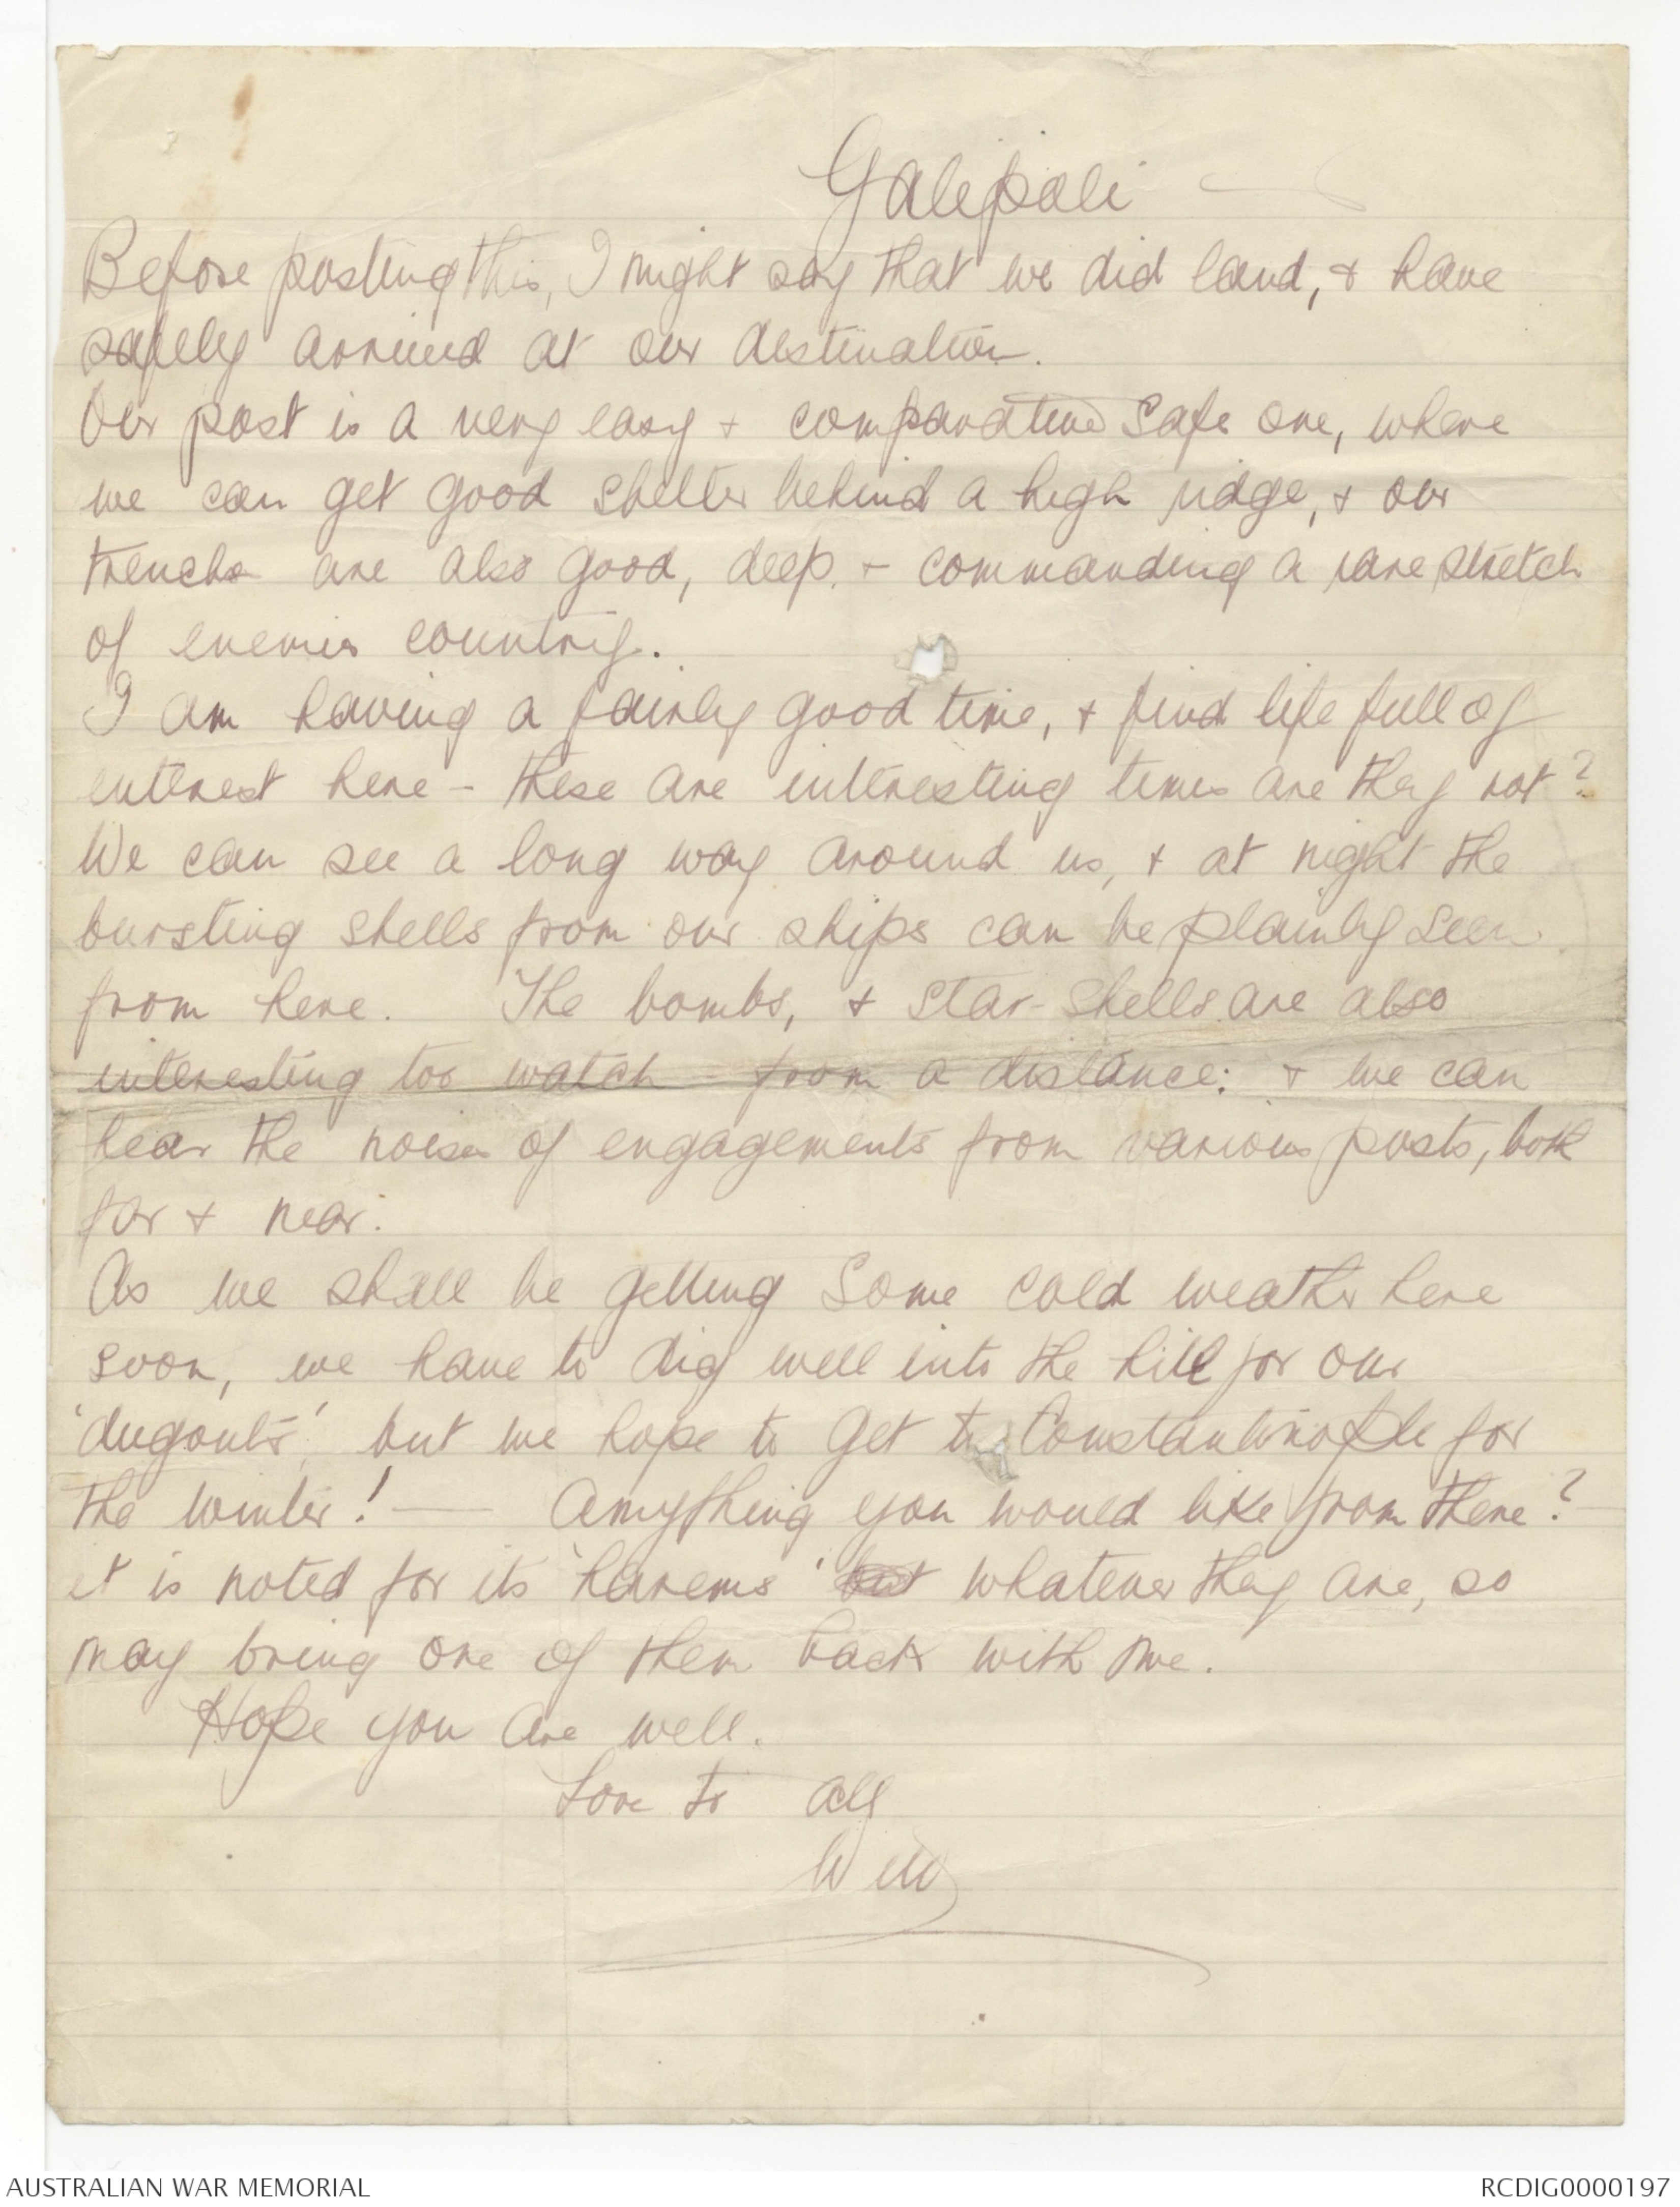 Galipoli
Before posting this, I might say that we did land, & have
safely arrived at our destination.
Our post is a very easy & comparative safe one, where
we can get good shelter behind a high ridge, & our
trenchs are also good, deep & commanding a rare stretch
of enemies country.
I am having a fairly good time, & find life full of
interest here - these are interesting times are they not?
We can see a long way around us, & at night the
bursting shells from our ships can be plainly seen
from here. The bombs, & star-shells are also
interesting too watch from a distance: & we can
hear the noises of engagements from various posts, both
far & near.
As we shall be getting some cold weather here
soon, we have to dig well into the hill for our
'dugouts' but we hope to get to Constantinople for
the winter! — Anything you would like from there?
it is noted for its 'harems' but whatever they are, so
may bring one of them back with me.
Hope you are well.
Love to all
Will
AUSTRALIAN WAR MEMORIAL
RCDIG0000197